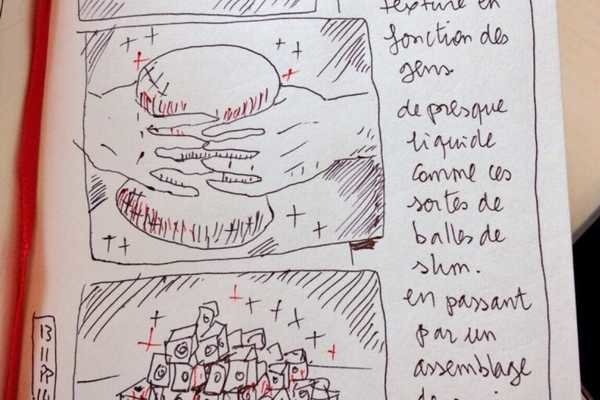 texture en
fonction des
gens
de presque
liquide
comme ces
sortes de
balles de
slim.
en passant
par un
assemblage
13
11